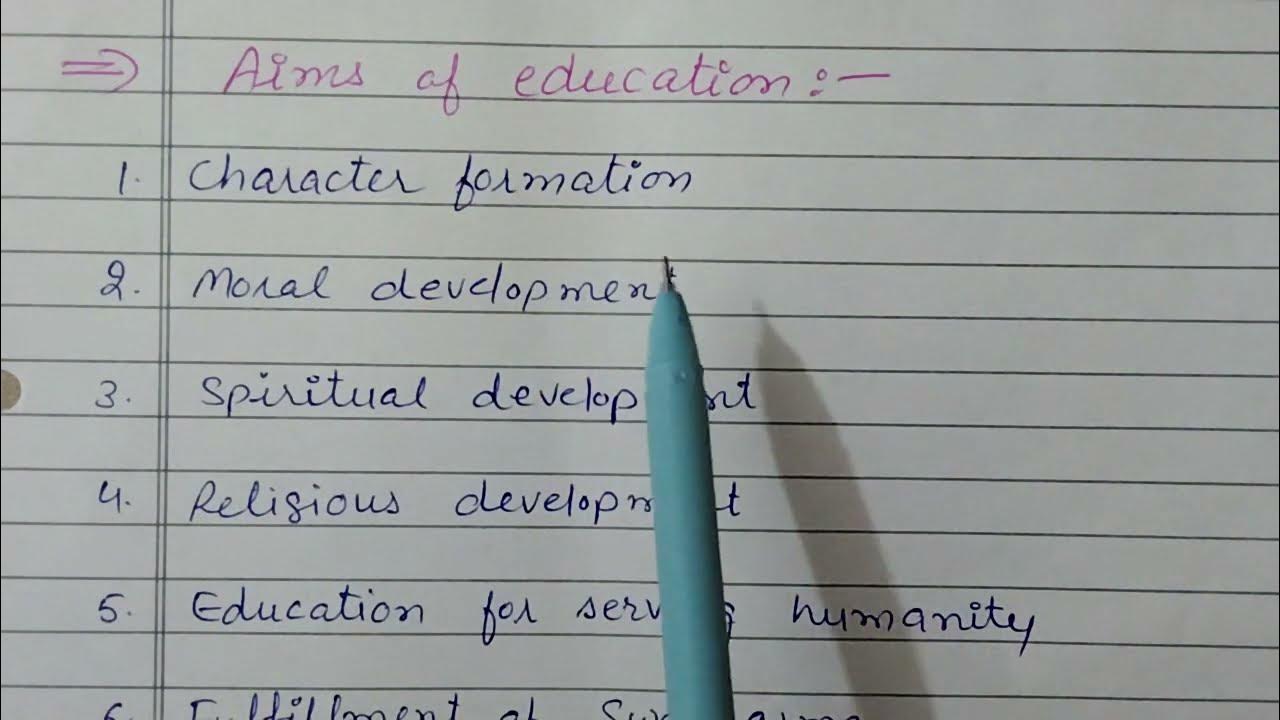 ⇒ Aims of education:-
1. Character formation
2. Moral development
3. Spiritual development
4. Religious development
5. Education for serving humanity
6. Fulfillment of